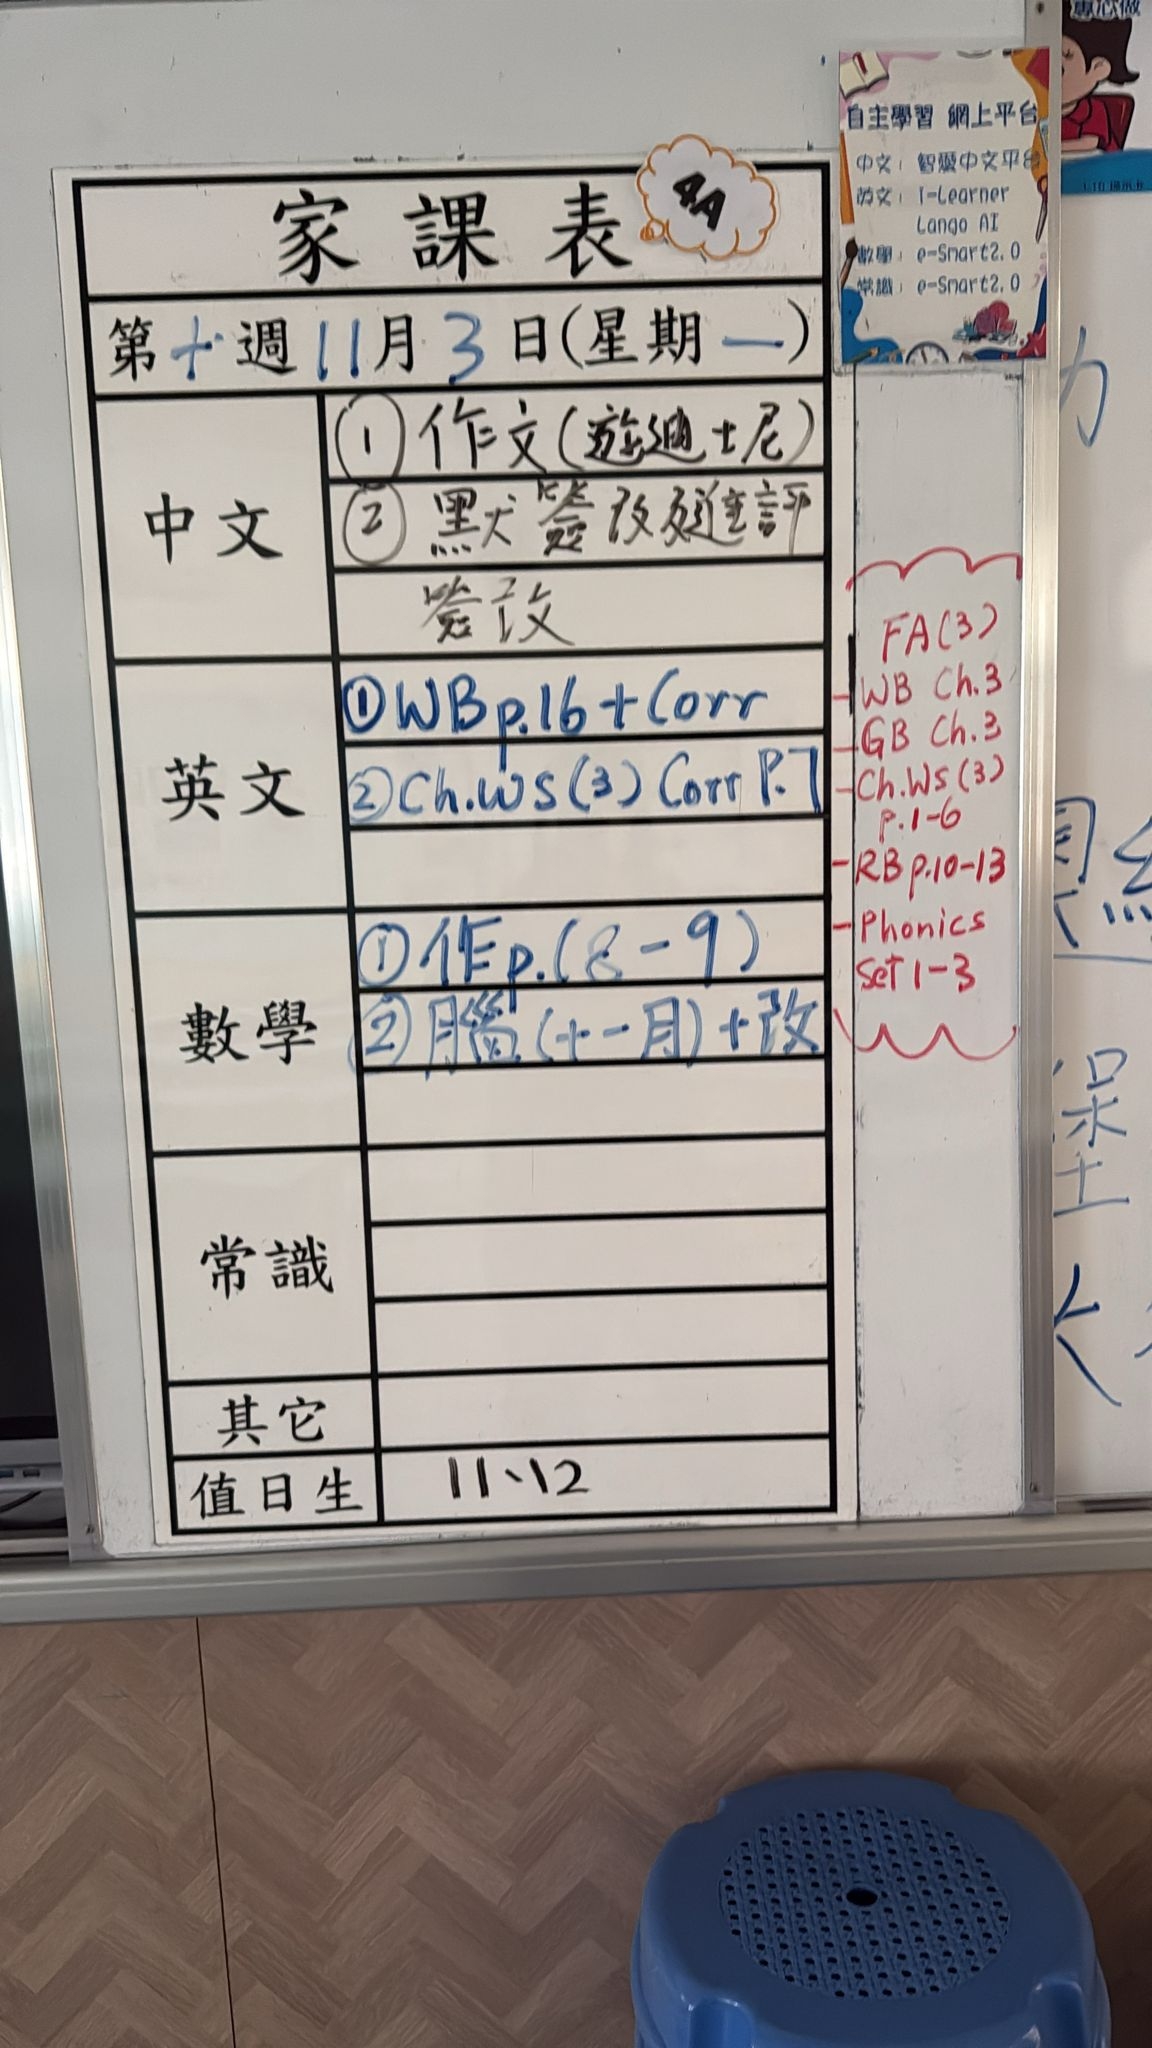 家課表
4A
第十週11月3日(星期一)
中文
① 作文(遊迪士尼)
② 默簽改 進評
簽改
英文
①WB p.16 + Corr
②Ch.WS(3) Corr P.7
數學
①作p.(8-9)
②腦(十一月)+改
常識
其它
值日生
11、12
專心做
自主學習 網上平台
中文: 智愛中文平台
英文: I-Learner
Lango AI
數學: e-Smart2.0
常識: e-Smart2.0
FA(3)
- WB Ch.3
- GB Ch.3
- Ch.WS(3)
p.1-6
- RB p.10-13
- Phonics
Set 1-3